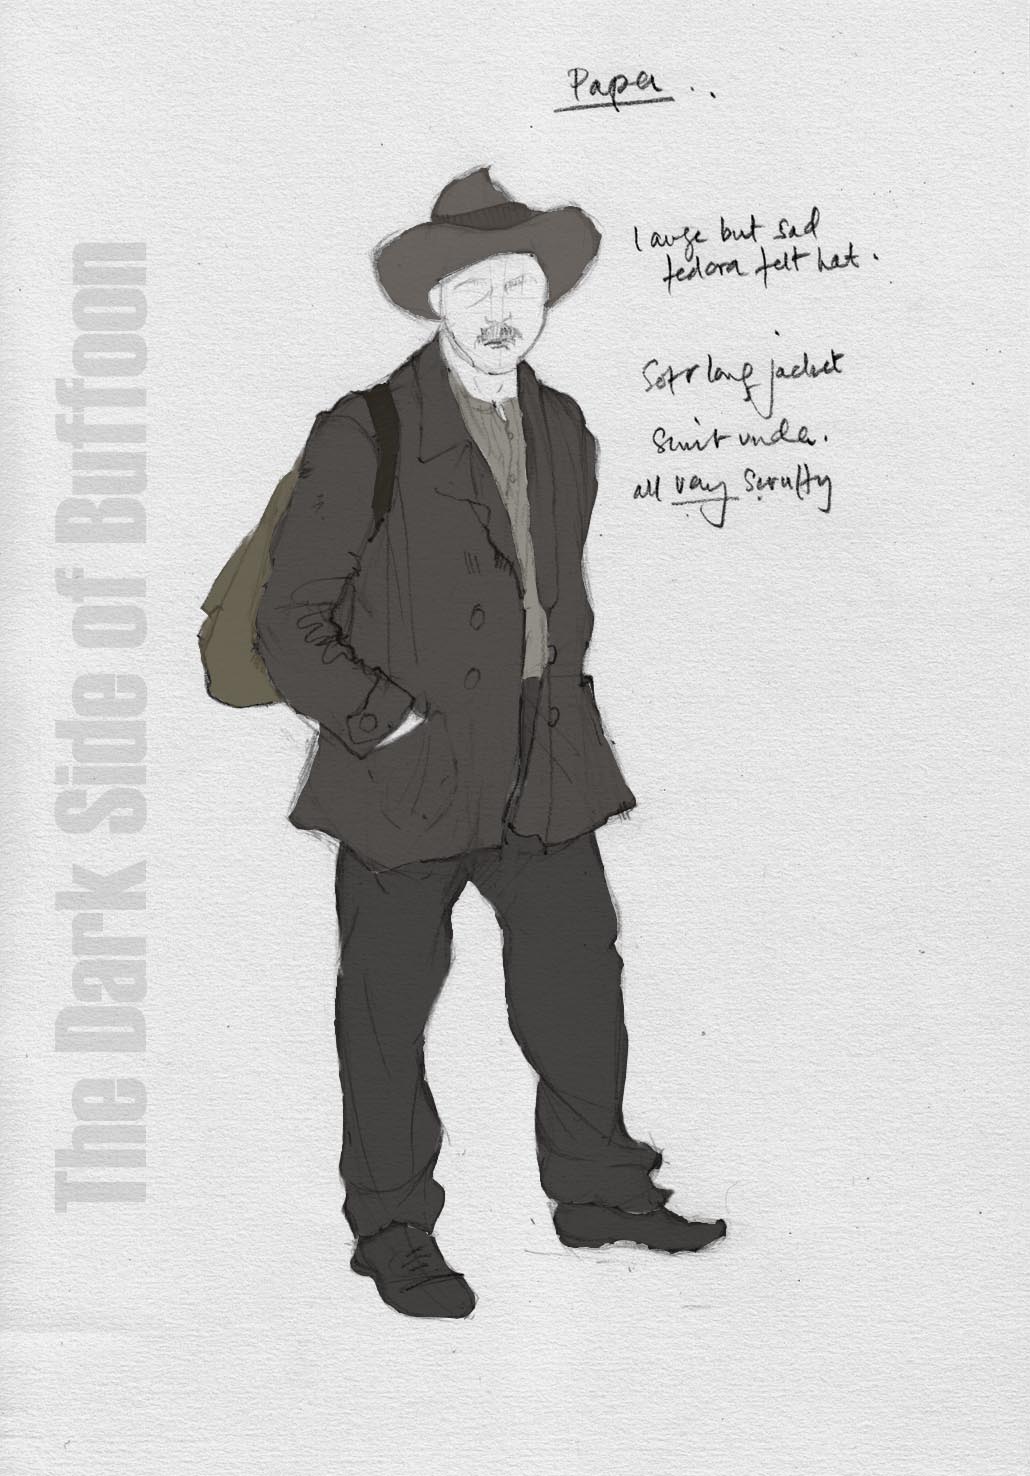 Papa . .
large but sad
fedora felt hat.
Soft long jacket
Suit under.
all very scruffy
The Dark Side of Buffoon